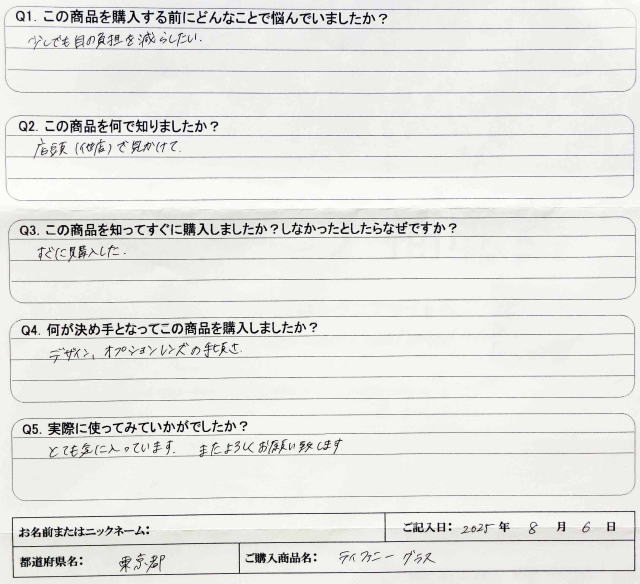 Q1. この商品を購入する前にどんなことで悩んでいましたか？
少しでも目の負担を減らしたい.
Q2. この商品を何で知りましたか？
店頭（他店）で見かけて.
Q3. この商品を知ってすぐに購入しましたか？しなかったとしたらなぜですか？
すぐに購入した.
Q4. 何が決め手となってこの商品を購入しましたか？
デザイン、オプションレンズの手頃さ.
Q5. 実際に使ってみていかがでしたか？
とても気に入っています. またよろしくお願い致します
お名前またはニックネーム： ご記入日： 2025 年 8 月 6 日
都道府県名： 東京都 ご購入商品名： ティファニー グラス